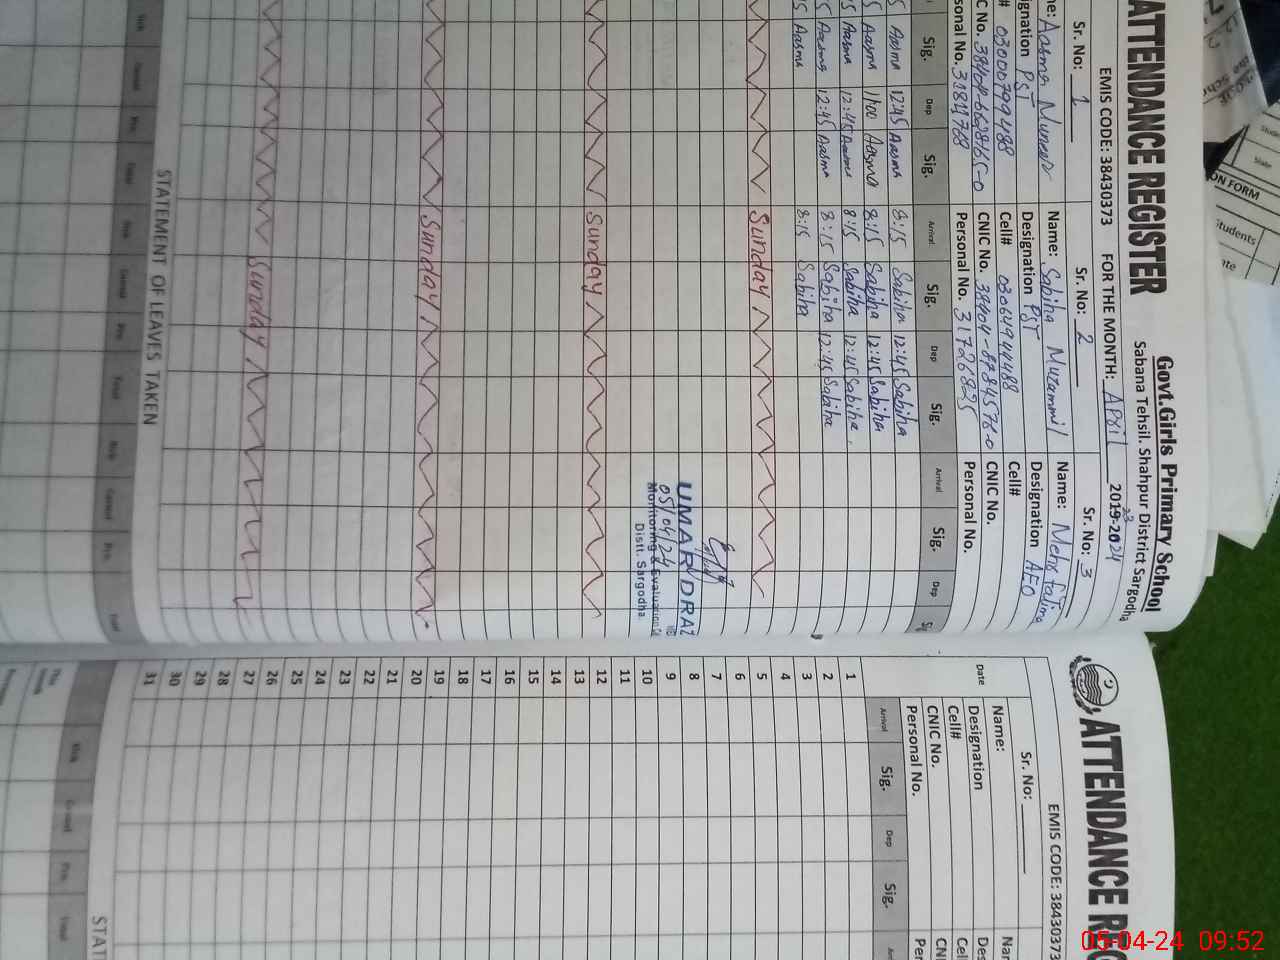 ATTENDANCE REGISTER
Govt.Girls Primary School
Sabana Tehsil. Shahpur District Sargodha
EMIS CODE: 38430373 FOR THE MONTH: April 2019-2024
23
Sr. No: 1
Aasma Muneer
Designation PST
03000799488
CNIC No.
Personal No. 31811768
Sr. No: 2
Name: Sabiha Muzammil
Designation PST
Cell# 03064944488
CNIC No. 38404-8784578-0
Personal No. 31726825
Sr. No: 3
Name: Mehr Fatima
Designation AEO
Cell#
CNIC No.
Personal No.
Sig. Dep Sig. Arrival Sig. Dep Sig. Arrival Sig. Dep
Aasma 12:45 Aasma 8:15 Sabiha 12:45 Sabiha
Aasma 11:00 Aasma 8:15 Sabiha 12:45 Sabiha
Aasma 12:45 Aasma 8:15 Sabiha 12:45 Sabiha
Aasma 12:45 Aasma 8:15 Sabiha 12:45 Sabiha
Aasma 8:15 Sabiha
Sunday
UMAR DRAZ
05/04/24
Monitoring & Evaluation
Distt. Sargodha
Sunday
Sunday
Sunday
STATEMENT OF LEAVES TAKEN
ATTENDANCE RE
EMIS CODE: 38430373
Sr. No:
Date
Name:
Designation
Cell#
CNIC No.
Personal No.
Arrival Sig. Dep Sig.
1
2
3
4
5
6
7
8
9
10
11
12
13
14
15
16
17
18
19
20
21
22
23
24
25
26
27
28
29
30
31
STAT
ON FORM
Students
State
05-04-24 09:52